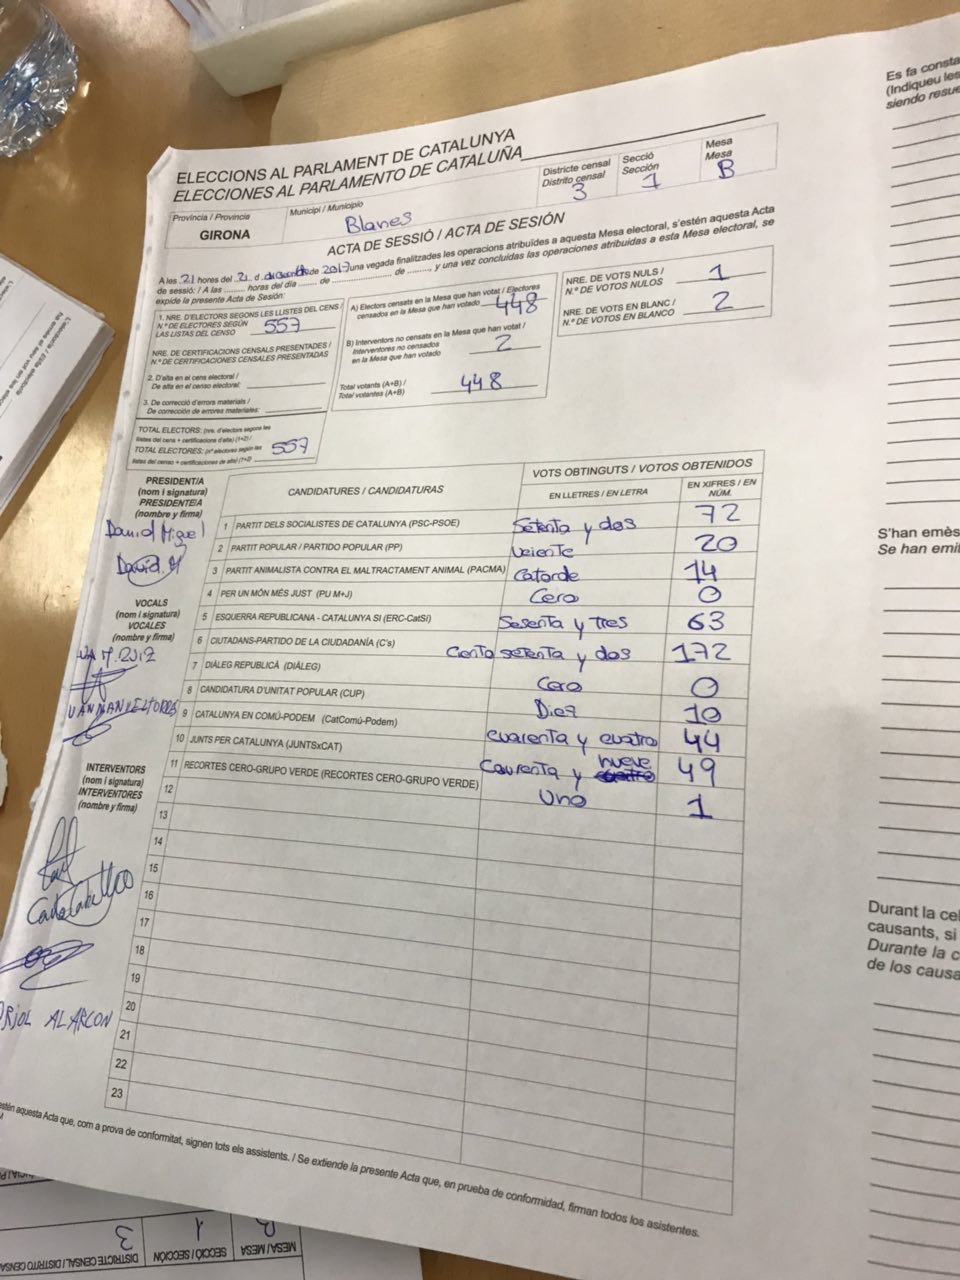 ELECCIONS AL PARLAMENT DE CATALUNYA
ELECCIONES AL PARLAMENTO DE CATALUÑA
Província / Provincia
GIRONA
Municipi / Municipio
Blanes
Districte censal
Distrito censal
3
Secció
Sección
1
Mesa
Mesa
B
ACTA DE SESSIÓ / ACTA DE SESIÓN
A les 21 hores del 21 d. diciembre de 2017 una vegada finalitzades les operacions atribuïdes a aquesta Mesa electoral, s'estén aquesta Acta
de sessió: / A las ........ horas del día ........ de ................ de ........, y una vez concluidas las operaciones atribuidas a esta Mesa electoral, se
expide la presente Acta de Sesión:
1. NRE. D'ELECTORS SEGONS LES LLISTES DEL CENS /
N.º DE ELECTORES SEGÚN
LAS LISTAS DEL CENSO
557
NRE. DE CERTIFICACIONS CENSALS PRESENTADES /
N.º DE CERTIFICACIONES CENSALES PRESENTADAS
2. D'alta en el cens electoral /
De alta en el censo electoral:
3. De correcció d'errors materials /
De corrección de errores materiales:
TOTAL ELECTORS: (nre. d'electors segons les
llistes del cens + certificacions d'alta) (1+2) /
TOTAL ELECTORES: (nº electores según las
listas del censo + certificaciones de alta) (1+2)
557
A) Electors censats en la Mesa que han votat / Electores
censados en la Mesa que han votado
448
B) Interventors no censats en la Mesa que han votat /
Interventores no censados
en la Mesa que han votado
2
Total votants (A+B) /
Total votantes (A+B)
448
NRE. DE VOTS NULS /
N.º DE VOTOS NULOS
1
NRE. DE VOTS EN BLANC /
N.º DE VOTOS EN BLANCO
2
PRESIDENT/A
(nom i signatura)
PRESIDENTE/A
(nombre y firma)
David Miguel
David M
VOCALS
(nom i signatura)
VOCALES
(nombre y firma)
INTERVENTORS
(nom i signatura)
INTERVENTORES
(nombre y firma)
ORIOL ALARCON
CANDIDATURES / CANDIDATURAS
VOTS OBTINGUTS / VOTOS OBTENIDOS
EN LLETRES / EN LETRA
EN XIFRES / EN NÚM.
1 PARTIT DELS SOCIALISTES DE CATALUNYA (PSC-PSOE) Setenta y dos 72
2 PARTIT POPULAR / PARTIDO POPULAR (PP) Veiente 20
3 PARTIT ANIMALISTA CONTRA EL MALTRACTAMENT ANIMAL (PACMA) Catorde 14
4 PER UN MÓN MÉS JUST (PU M+J) Cero 0
5 ESQUERRA REPUBLICANA - CATALUNYA SI (ERC-CatSI) Sesenta y tres 63
6 CIUTADANS-PARTIDO DE LA CIUDADANÍA (C's) Ciento setenta y dos 172
7 DIÀLEG REPUBLICÀ (DIÀLEG) Cero 0
8 CANDIDATURA D'UNITAT POPULAR (CUP) Diez 10
9 CATALUNYA EN COMÚ-PODEM (CatComú-Podem) cuarenta y cuatro 44
10 JUNTS PER CATALUNYA (JUNTSxCAT) Caurenta y nueve 49
11 RECORTES CERO-GRUPO VERDE (RECORTES CERO-GRUPO VERDE) Uno 1
12
13
14
15
16
17
18
19
20
21
22
23
estén aquesta Acta que, com a prova de conformitat, signen tots els assistents. / Se extiende la presente Acta que, en prueba de conformidad, firman todos los asistentes.
Es fa consta
(Indiqueu les
siendo resue
S'han emès
Se han emit
Durant la cel
causants, si
Durante la c
de los causa
MESA / MESA
B
SECCIÓ / SECCIÓN
1
DISTRICTE CENSAL / DISTRITO CENSA
3